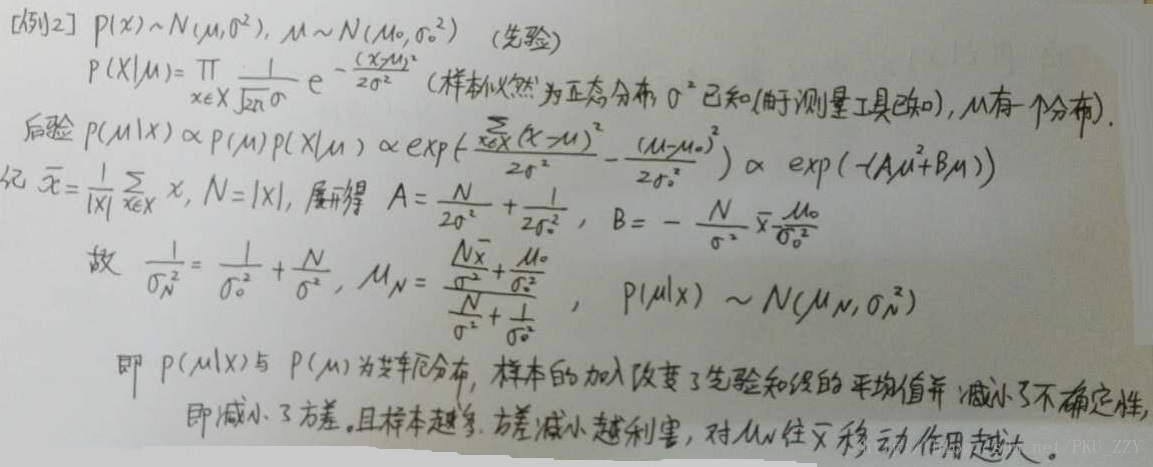 [例2] P(x)~N(μ,σ²), μ~N(μ₀,σ₀²) (先验)
P(X|μ)= ∏_{x∈X} \frac{1}{\sqrt{2π}σ} e^{-\frac{(x-μ)²}{2σ²}} (样本似然为正态分布, σ²已知(由于测量工具已知), μ有一个分布).
后验 P(μ|X) ∝ P(μ)P(X|μ) ∝ exp(-\frac{\sum_{x∈X}(x-μ)²}{2σ²} - \frac{(μ-μ₀)²}{2σ₀²}) ∝ exp(-(Aμ²+Bμ))
记 x̄=\frac{1}{|X|}\sum_{x∈X} x, N=|X|, 展开得 A=\frac{N}{2σ²}+\frac{1}{2σ₀²}, B=-\frac{N}{σ²}x̄-\frac{μ₀}{σ₀²}
故 \frac{1}{σ_N²}=\frac{1}{σ₀²}+\frac{N}{σ²}, μ_N=\frac{\frac{Nx̄}{σ²}+\frac{μ₀}{σ₀²}}{\frac{N}{σ²}+\frac{1}{σ₀²}}, P(μ|x) ~ N(μ_N,σ_N²)
即 P(μ|X)与 P(μ)为共轭分布, 样本的加入改变了先验知识的平均值并减小了不确定性,
即减小了方差。且样本越多, 方差减小越利害, 对μ_N往x̄移动作用越大。
net/PKU_ZZY